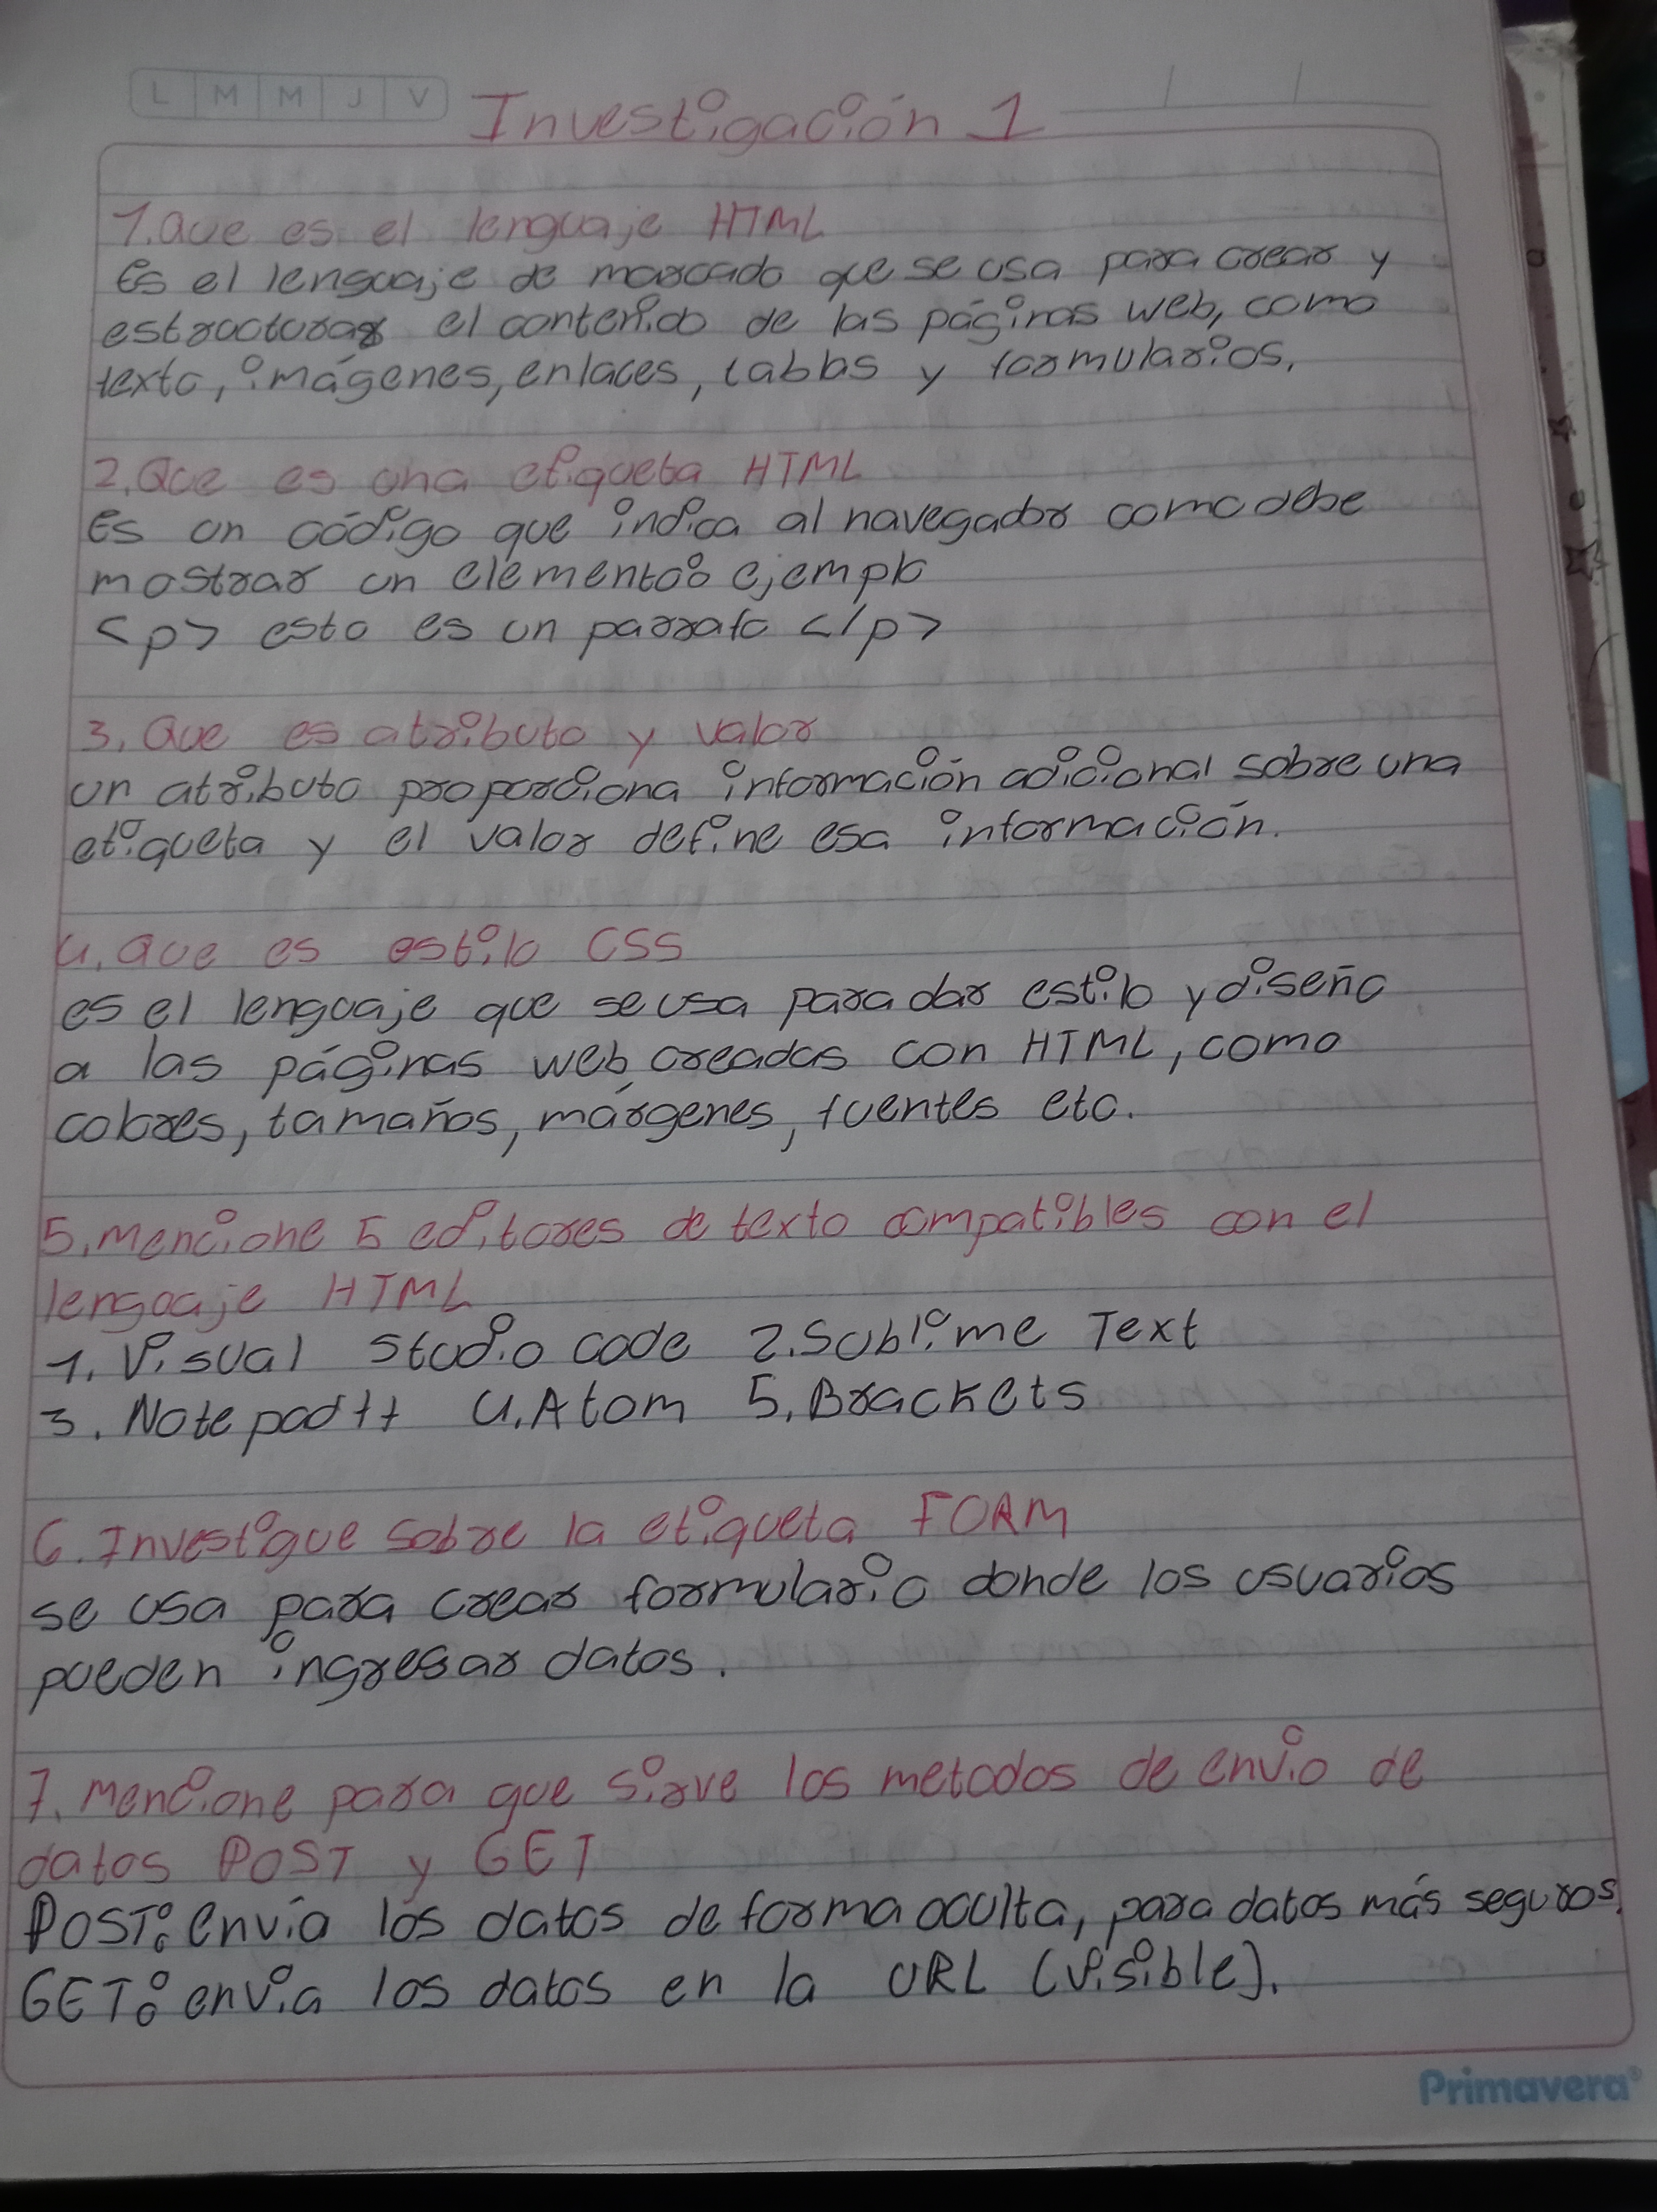 L M M J V
Investigación 1
1. Que es el lenguaje HTML
Es el lenguaje de marcado que se usa para crear y
estructurar el contenido de las páginas web, como
texto, imágenes, enlaces, tablas y formularios.
2. Que es una etiqueta HTML
Es un código que indica al navegador como debe
mostrar un elemento: ejemplo
<p> esto es un parrafo </p>
3. Que es atributo y valor
un atributo proporciona información adicional sobre una
etiqueta y el valor define esa información.
4. Que es estilo CSS
es el lenguaje que se usa para dar estilo y diseño
a las páginas web creadas con HTML, como
colores, tamaños, márgenes, fuentes etc.
5. Mencione 5 editores de texto compatibles con el
lenguaje HTML
1. Visual studio code 2. Sublime Text
3. Notepad++ 4. Atom 5. Brackets
6. Investigue sobre la etiqueta FORM
se usa para crear formulario donde los usuarios
pueden ingresar datos.
7. Mencione para que sirve los metodos de envio de
datos POST y GET
POST: envía los datos de forma oculta, para datos más seguros.
GET: envia los datos en la URL (visible).
Primavera